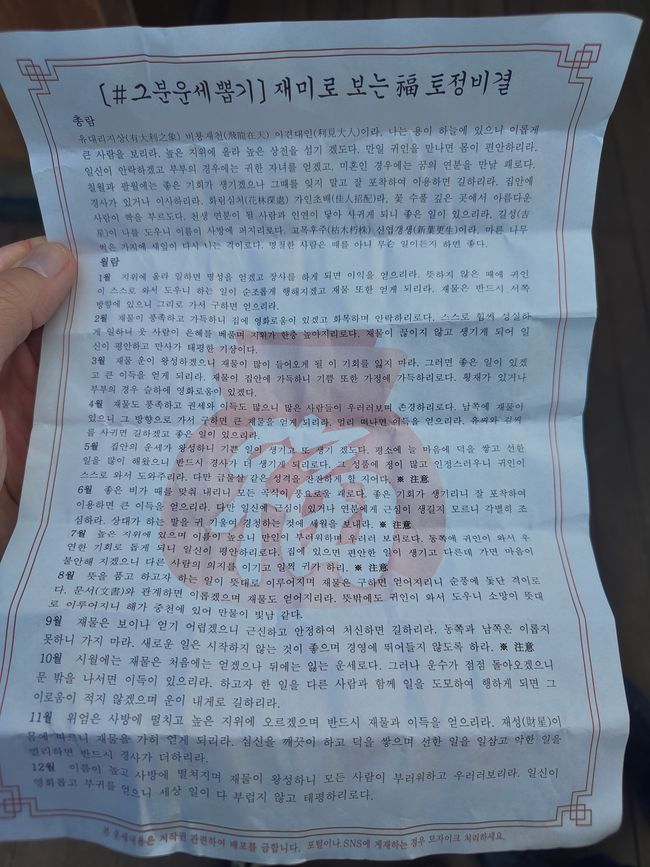 [#그분운세뽑기] 재미로 보는 福 토정비결
총람
유대리지상(有大利之象) 비룡재천(飛龍在天) 이견대인(利見大人)이라. 나는 용이 하늘에 있으니 이롭게
큰 사람을 보리라. 높은 지위에 올라 높은 상전을 섬기 겠도다. 만일 귀인을 만나면 몸이 편안하리라.
일신이 안락하겠고 부부의 경우에는 귀한 자녀를 얻겠고, 미혼인 경우에는 꿈의 연분을 만날 괘로다.
칠월과 팔월에는 좋은 기회가 생기겠으니 그때를 잊지 말고 잘 포착하여 이용하면 길하리라. 집안에
경사가 있거나 이사하리라. 화림심처(花林深處) 가인초배(佳人招配)라, 꽃 수풀 깊은 곳에서 아름다운
사람이 짝을 부르도다. 천생 연분이 될 사람과 인연이 닿아 사귀게 되니 좋은 일이 있으리라. 길성(吉
星)이 나를 도우니 이름이 사방에 퍼지리로다. 고목후주(枯木朽株) 신엽갱생(新葉更生)이라, 마른 나무
썩은 가지에 새잎이 다시 나는 격이로다. 명철한 사람은 때를 아니 무슨 일이든지 하면 좋다.
월람
1월 지위에 올라 일하면 명성을 얻겠고 장사를 하게 되면 이익을 얻으리라. 뜻하지 않은 때에 귀인
이 스스로 와서 도우니 하는 일이 순조롭게 행해지겠고 재물 또한 얻게 되리라. 재물은 반드시 서쪽
방향에 있으니 그리로 가서 구하면 얻으리라.
2월 재물이 풍족하고 가득하니 집에 영화로움이 있겠고 화목하며 안락하리로다. 스스로 힘써 성실하
게 일하니 웃 사람이 은혜를 베풀며 지위가 한층 높아지리로다. 재물이 끊이지 않고 생기게 되어 일
신이 평안하고 만사가 태평한 기상이다.
3월 재물 운이 왕성하겠으니 재물이 많이 들어오게 될 이 기회를 잃지 마라. 그러면 좋은 일이 있겠
고 큰 이득을 얻게 되리라. 재물이 집안에 가득하니 기쁨 또한 가정에 가득하리로다. 횡재가 있거나
부부의 경우 슬하에 영화로움이 있겠다.
4월 재물도 풍족하고 권세와 이득도 많으니 많은 사람들이 우러러보며 존경하리로다. 남쪽에 재물이
있으니 그 방향으로 가서 구하면 큰 재물을 얻게 되리라. 멀리 떠나면 이득을 얻으리라. 유씨와 김씨
를 사귀면 길하겠고 좋은 일이 있으리라.
5월 집안의 운세가 왕성하니 기쁜 일이 생기고 또 생기 겠도다. 평소에 늘 마음에 덕을 쌓고 선한
일을 많이 해왔으니 반드시 경사가 더 생기게 되리로다. 그 성품에 정이 많고 인정스러우니 귀인이
스스로 와서 도와주리라. 다만 급물살 같은 성격을 잔잔하게 할 지어다. ※ 注意
6월 좋은 비가 때를 맞춰 내리니 모든 곡식이 풍요로울 괘로다. 좋은 기회가 생기리니 잘 포착하여
이용하면 큰 이득을 얻으리라. 다만 일신에 근심이 있거나 연분에게 근심이 생길지 모르니 각별히 조
심하라. 상대가 하는 말을 귀 기울여 경청하는 것에 세월을 보내라. ※ 注意
7월 높은 지위에 있으며 이름이 높으니 만인이 부러워하며 우러러 보리로다. 동쪽에 귀인이 와서 우
연한 기회로 돕게 되니 일신이 평안하리로다. 집에 있으면 편안한 일이 생기고 다른데 가면 마음이
불안해 지겠으니 다른 사람의 의지를 이기고 일찍 귀가 하리. ※ 注意
8월 뜻을 품고 하고자 하는 일이 뜻대로 이루어지며 재물은 구하면 얻어지리니 순풍에 돛단 격이로
다. 문서(文書)와 관계하면 이롭겠으며 재물도 얻어지리라. 뜻밖에도 귀인이 와서 도우니 소망이 뜻대
로 이루어지니 해가 중천에 있어 만물이 빛남 같다.
9월 재물은 보이나 얻기 어렵겠으니 근신하고 안정하여 처신하면 길하리라. 동쪽과 남쪽은 이롭지
못하니 가지 마라. 새로운 일은 시작하지 않는 것이 좋으며 경영에 뛰어들지 않도록 하라. ※ 注意
10월 시월에는 재물은 처음에는 얻겠으나 뒤에는 잃는 운세로다. 그러나 운수가 점점 돌아오겠으니
문 밖을 나서면 이득이 있으리라. 하고자 한 일을 다른 사람과 함께 일을 도모하여 행하게 되면 그
이로움이 적지 않겠으며 운이 내게로 길하리라.
11월 위엄은 사방에 떨치고 높은 지위에 오르겠으며 반드시 재물과 이득을 얻으리라. 재성(財星)이
몸에 따르니 재물을 가히 얻게 되리라. 심신을 깨끗이 하고 덕을 쌓으며 선한 일을 일삼고 악한 일을
멀리하면 반드시 경사가 더하리라.
12월 이름이 높고 사방에 떨쳐지며 재물이 왕성하니 모든 사람이 부러워하고 우러러보리라. 일신이
영화롭고 부귀를 얻으니 세상 일이 다 부럽지 않고 태평하리로다.
福
본 운세내용은 저작권 관련하여 배포를 금합니다. 포털이나 SNS에 게재하는 경우 모자이크 처리하세요.